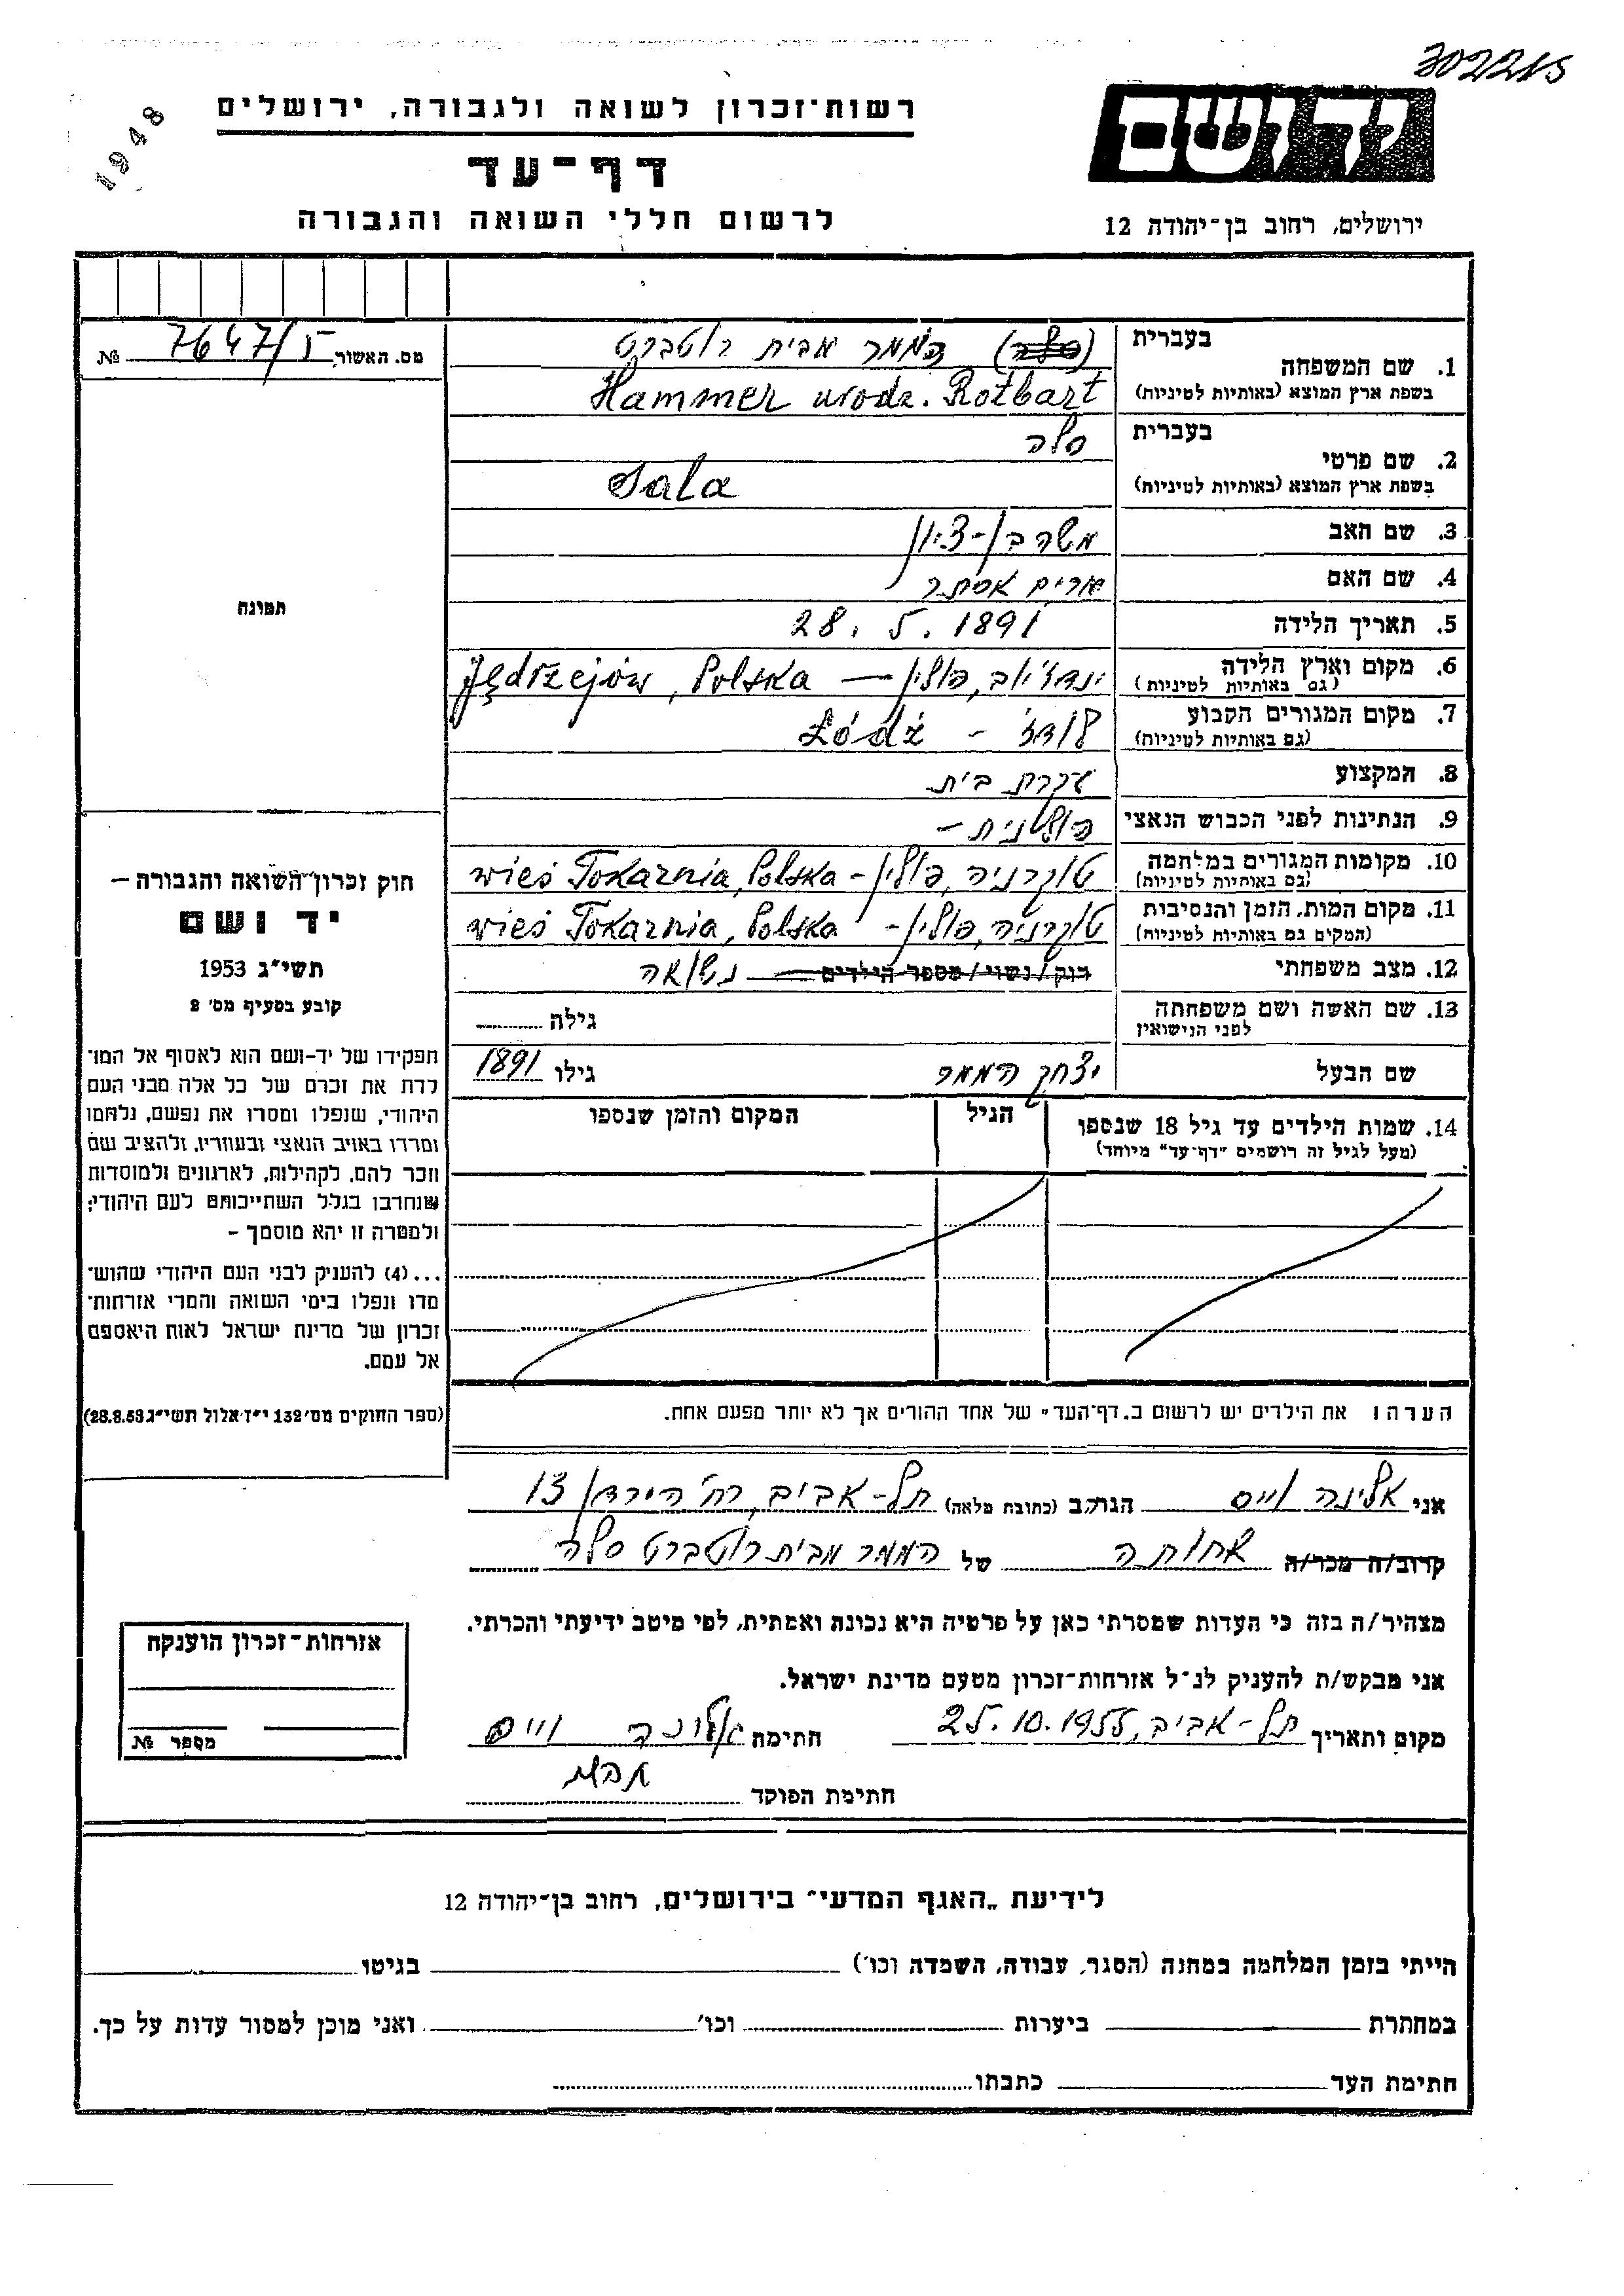 302215
1948
רשות-זכרון לשואה ולגבורה, ירושלים
דף-עד
לרשום חללי השואה והגבורה
יד ושם
ירושלים, רחוב בן-יהודה 12
מס. האשור 7647/ №
1. שם המשפחה
בעברית (סלה) הממר מבית רוטברט
בשפת ארץ המוצא (באותיות לטיניות) Hammer urodz. Rotbart
2. שם פרטי
בעברית סלה
בשפת ארץ המוצא (באותיות לטיניות) Sala
3. שם האב משה בן-ציון
4. שם האם מרים אסתר
5. תאריך הלידה 28. 5. 1891
6. מקום וארץ הלידה (גם באותיות לטיניות) פולין — Jędrzejów, Polska
7. מקום המגורים הקבוע (גם באותיות לטיניות) לודז' - Łódź
8. המקצוע עקרת בית
9. הנתינות לפני הכבוש הנאצי פולנית –
10. מקומות המגורים במלחמה (גם באותיות לטיניות) טוקרניה, פולין - wieś Tokarnia, Polska
11. מקום המות, הזמן והנסיבות (המקום גם באותיות לטיניות) טוקרניה, פולין - wieś Tokarnia, Polska
12. מצב משפחתי רוק/נשוי/מספר הילדים נשואה
13. שם האשה ושם משפחתה לפני הנישואין גילה
שם הבעל יצחק הממר גילו 1891
14. שמות הילדים עד גיל 18 שנספו
(מעל לגיל זה רושמים "דף-עד" מיוחד)
הגיל
המקום והזמן שנספו
הערה: את הילדים יש לרשום ב„דף-העד" של אחד ההורים אך לא יותר מפעם אחת.
תמונה
חוק זכרון השואה והגבורה –
יד ושם
תשי"ג 1953
קובע בסעיף מס' 2
תפקידו של יד-ושם הוא לאסוף אל המו-
לדת את זכרם של כל אלה מבני העם
היהודי, שנפלו ומסרו את נפשם, נלחמו
ומרדו באויב הנאצי ובעוזריו, ולהציב שם
וזכר להם, לקהילות, לארגונים ולמוסדות
שנחרבו בגלל השתייכותם לעם היהודי;
ולמטרה זו יהא מוסמך –
...(4) להעניק לבני העם היהודי שהוש-
מדו ונפלו בימי השואה והמרי אזרחות-
זכרון של מדינת ישראל לאות היאספם
אל עמם.
(ספר החוקים מס' 132 י"ז אלול תשי"ג 28.8.53)
אני אלינה וייס הגר/ה ב (כתובת מלאה) תל-אביב, רח' הירדן 13
קרוב/ה מכר/ה אחותה של הממר מבית רוטברט סלה
מצהיר/ה בזה כי העדות שמסרתי כאן על פרטיה היא נכונה ואמתית, לפי מיטב ידיעתי והכרתי.
אני מבקש/ת להעניק לנ"ל אזרחות-זכרון מטעם מדינת ישראל.
מקום ותאריך תל-אביב, 25.10.1955 חתימה אלינה וייס
חתימת הפוקד
אזרחות-זכרון הוענקה
מספר №
לידיעת „האגף המדעי" בירושלים, רחוב בן-יהודה 12
הייתי בזמן המלחמה במחנה (הסגר, עבודה, השמדה וכו') בגיטו
במחתרת ביערות וכו' ואני מוכן למסור עדות על כך.
חתימת העד כתבתו